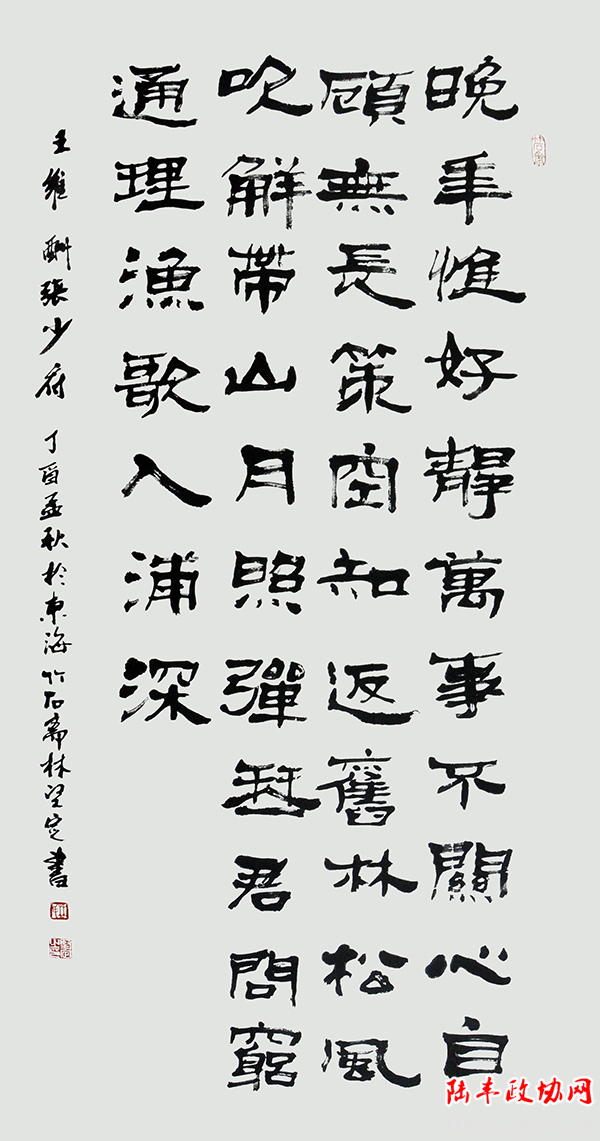 晚年惟好靜萬事不關心自
顧無長策空知返舊林松風
吹解帶山月照彈琴君問窮
通理漁歌入浦深
王維酬張少府 丁酉孟秋於東海竹石齋林望定書
陆丰政协网